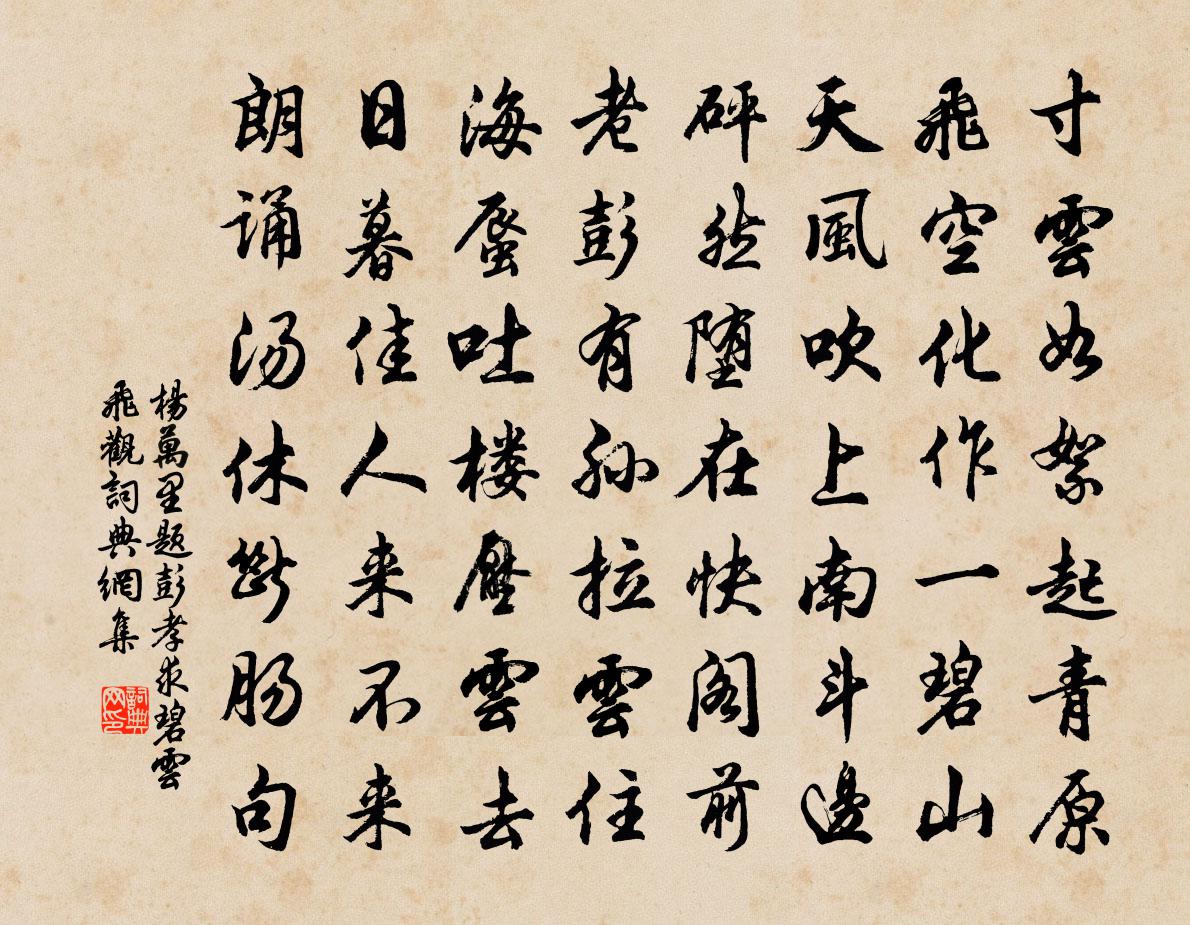 寸雲如絮起青原
飛空化作一碧山
天風吹上南斗邊
砰然堕在快阁前
老彭有孙拉雲住
海蜃吐楼壓雲去
日暮佳人来不来
朗诵汤休断肠句
楊萬里题彭孝求碧雲
飛觀詞典網集
詞典网印